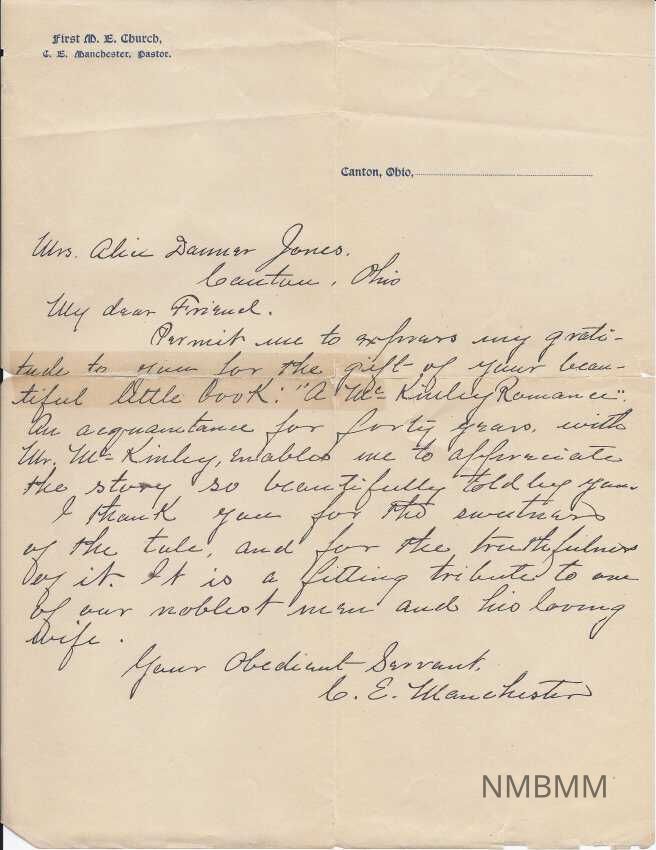 First M. E. Church,
C. E. Manchester, Pastor.
Canton, Ohio,
Mrs. Alice Danner Jones.
Canton, Ohio
My dear Friend.
Permit me to express my grati-
tude to you for the gift of your beau-
tiful little book: "A Mc Kinley Romance".
An acquaintance for forty years, with
Mr. Mc Kinley, enables me to appreciate
the story so beautifully told by you.
I thank you for the sweetness
of the tale, and for the truthfulness
of it. It is a fitting tribute to one
of our noblest men and his loving
wife.
Your Obedient Servant.
C. E. Manchester
NMBMM